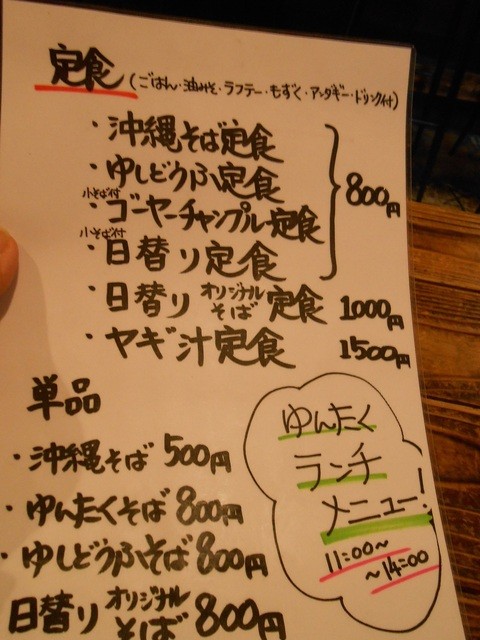 定食(ごはん・油みそ・ラフテー・もずく・アンダギー・ドリンク付)
・沖縄そば定食
・ゆしどうふ定食
小そば付
・ゴーヤーチャンプルー定食
小そば付
・日替り定食
800円
・日替りオリジナルそば定食 1000円
・ヤギ汁定食 1500円
単品
・沖縄そば 500円
・ゆんたくそば 800円
・ゆしどうふそば 800円
日替りオリジナルそば 800円
ゆんたく
ランチ
メニュー!
11:00~
~14:00